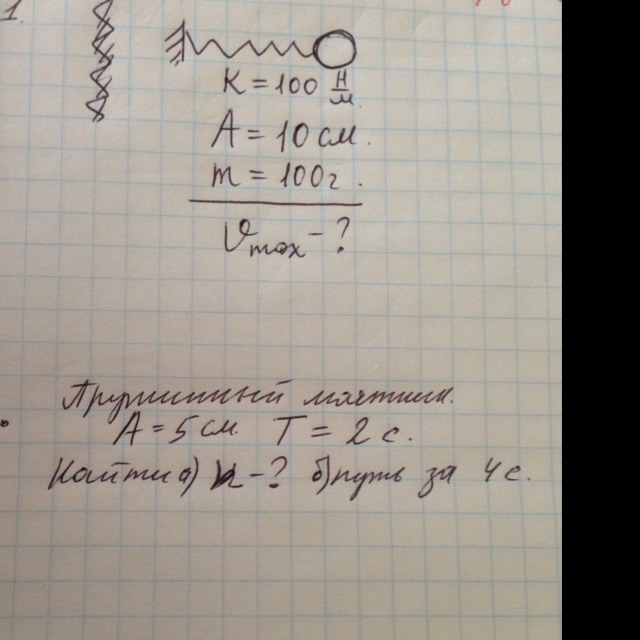 1.
K = 100 Н/м
A = 10 см.
m = 100 г.
υmax - ?
Пружинный маятник.
A = 5 см. T = 2 с.
Найти а) - ? б) путь за 4 с.